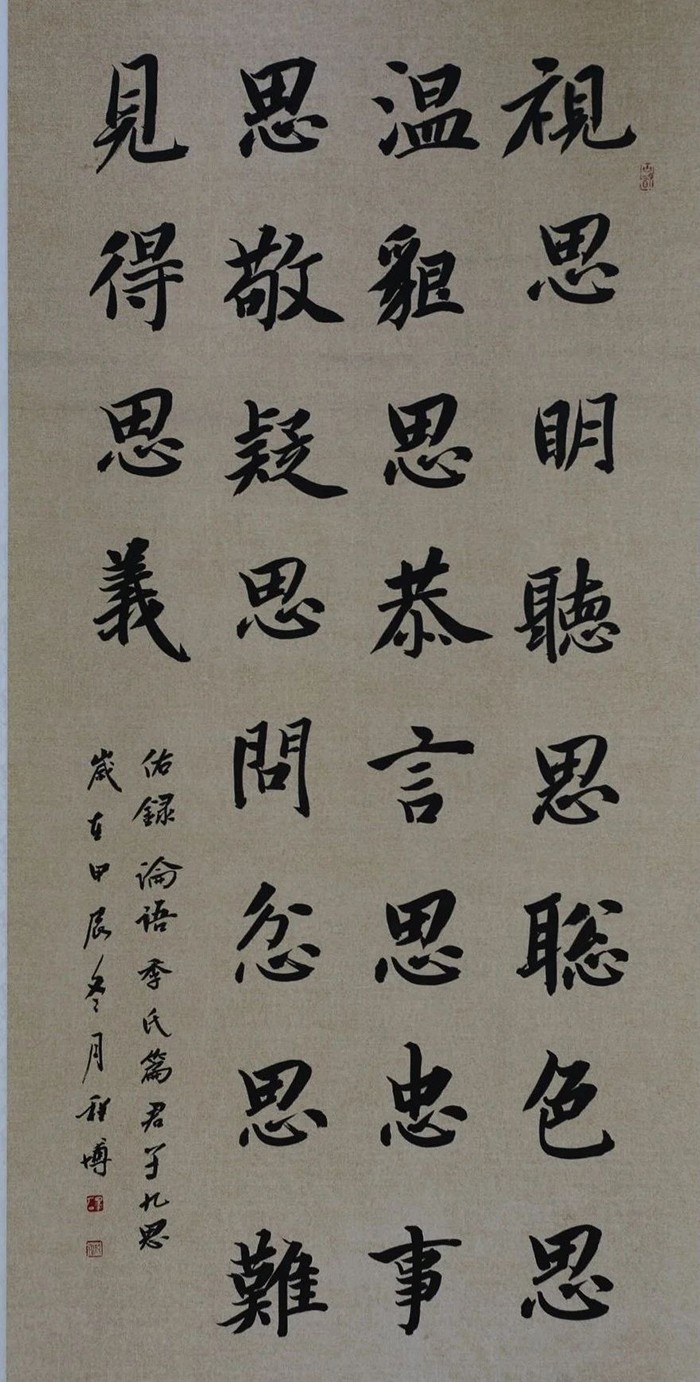 視思明聽思聪色思
温貌思恭言思忠事
思敬疑思問忿思難
見得思義
佑録論語季氏篇君子九思
歲在甲辰冬月程博